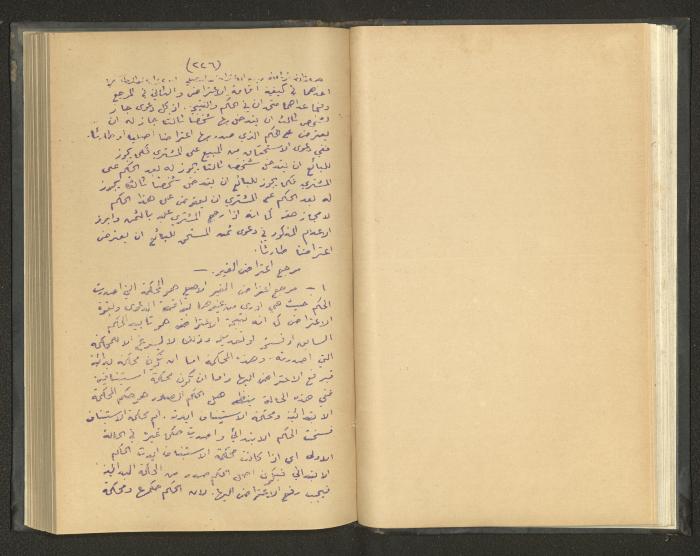 (٢٢٦)
احدهما في كيفية اقامة الاعتراض والثاني في المرجع
وفيما عداهما متحدان في الحكم والنتيجة. اذ كل دعوى جاز
لشخص ثالث ان يتدخل بها شخصا ثالثا جاز له ان
يعترض على الحكم الذي صدر بها اعتراضا اصليا او طارئا.
ففي دعوى الاستحقاق من المبيع على المشتري كما يجوز
للبائع ان يتدخل شخصا ثالثا يجوز له بعد الحكم على
المشتري فكما يجوز للبائع ان يتدخل شخصا ثالثا يجوز
له بعد الحكم على المشتري ان يعترض على هذا الحكم
كما انه اذا رجع المشتري عليه بالثمن وابرز
الاعلام المذكور في دعوى المستحق للبائع ان يعترض
اعتراضا طارئا.
مرجع اعتراض الغير. —
١ — مرجع اعتراض الغير الاصلي هو المحكمة التي اصدرت
الحكم حيث هي ادرى من غيرها الدعوى
الاعتراض كما انه نتيجة الاعتراض هو تأييد الحكم
السابق او فسخه او تعديله وذلك لا الا للمحكمة
التي اصدرته. وهذه المحكمة اما ان تكون محكمة بدائية
فيرفع الاعتراض اليها واما ان تكون محكمة استئنافية.
ففي هذه الحالة ينظر هل الحكم الصادر هو حكم المحكمة
الابتدائية ومحكمة الاستئناف ايدته. ام محكمة الاستئناف
فسخت الحكم الابتدائي واصدرت حكما غيره في الحالة
الاولى اي اذا كانت محكمة الاستئناف ايدت الحكم
الابتدائي فيكون اصل الحكم صدر من المحكمة البدائية
فيجب رفع الاعتراض اليها. لان الحكم حكمها ومحكمة